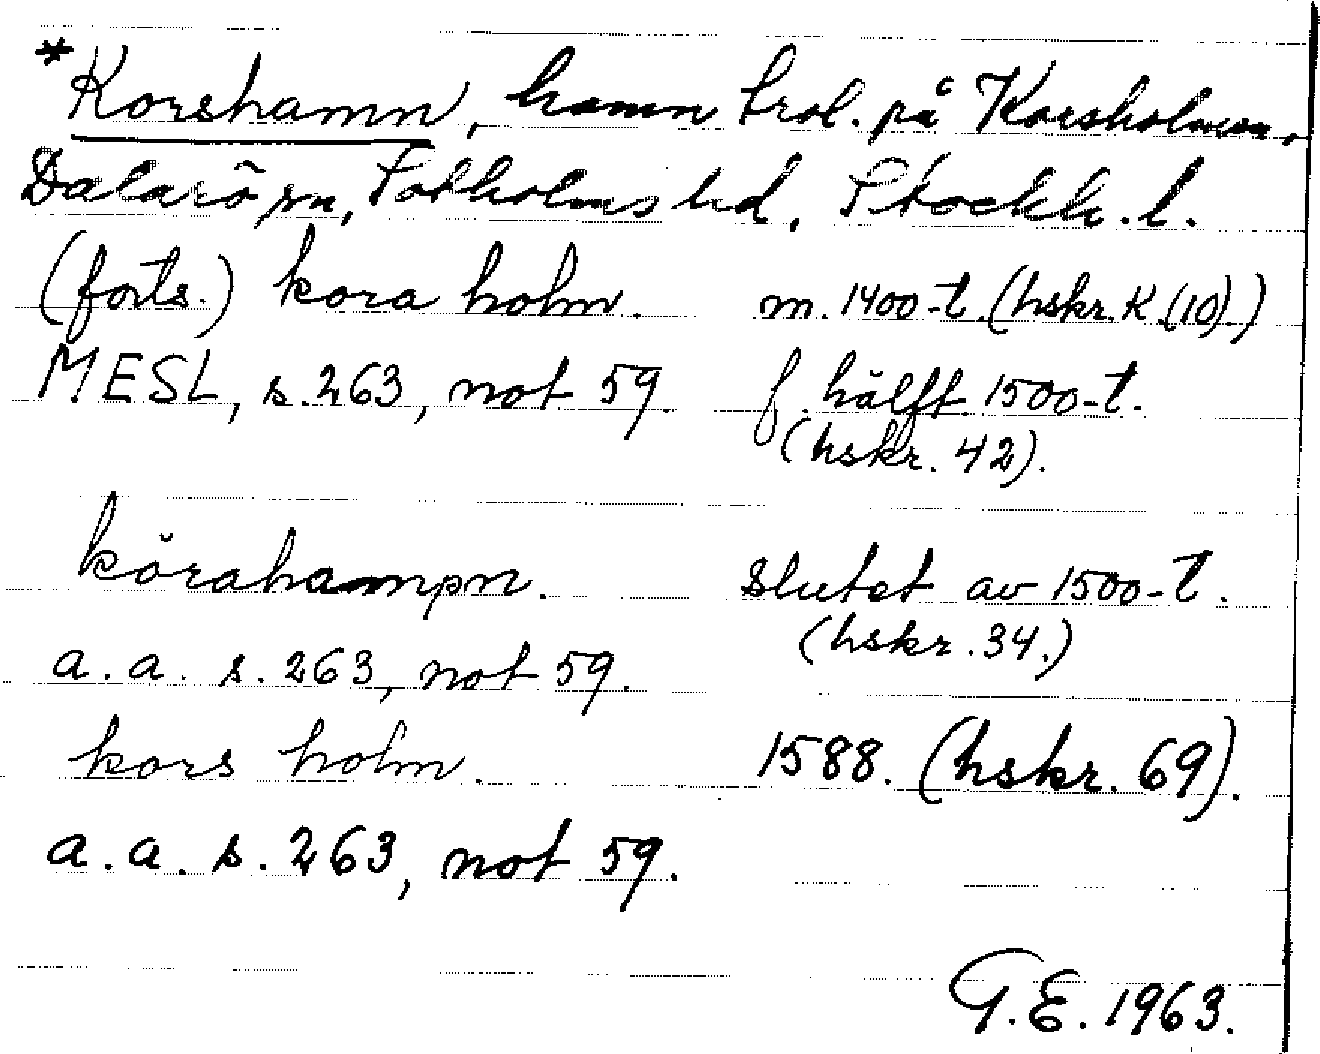 *Korshamn, hamn trol. på Korsholmen,
Dalarö sn, Sotholms hd, Stockh. l.
(forts.) kora holm. m. 1400-t. (hskr. K (10).)
MESL, s. 263, not 59. f. hälft. 1500-t.
(hskr. 42).
körahampn. slutet av 1500-t.
(hskr. 34.)
a. a. s. 263, not 59.
kors holm. 1588. (hskr. 69).
a. a. s. 263, not 59.
G.E. 1963.